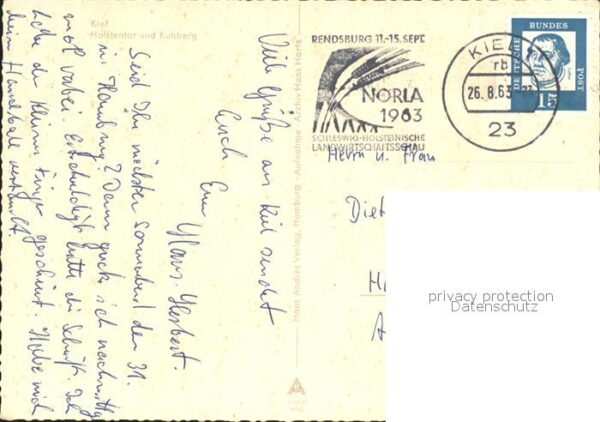 Kiel
Holstentor und Kuhberg
Viele Grüße aus Kiel sendet
Euch Euer
Klaus-Herbert.
Seid Ihr nächsten Sonnabend den 31.
in Hamburg? Dann guck ich nachmittg
mal vorbei. Entschuldigt bitte die Schrift. Ich
habe den kleinen Finger geschient. Habe mich
beim Handball verknackt.
Hans Andres Verlag, Hamburg - Aufnahme: Archiv Hans Hartz
RENDSBURG 11.-15. SEPT.
NORLA
1963
SCHLESWIG-HOLSTEINISCHE
LANDWIRTSCHAFTSSCHAU
KIEL
rb
26.8.63
23
DEUTSCHE
BUNDES
POST
15
Herrn u. Frau
Diet
H
A
privacy protection
Datenschutz